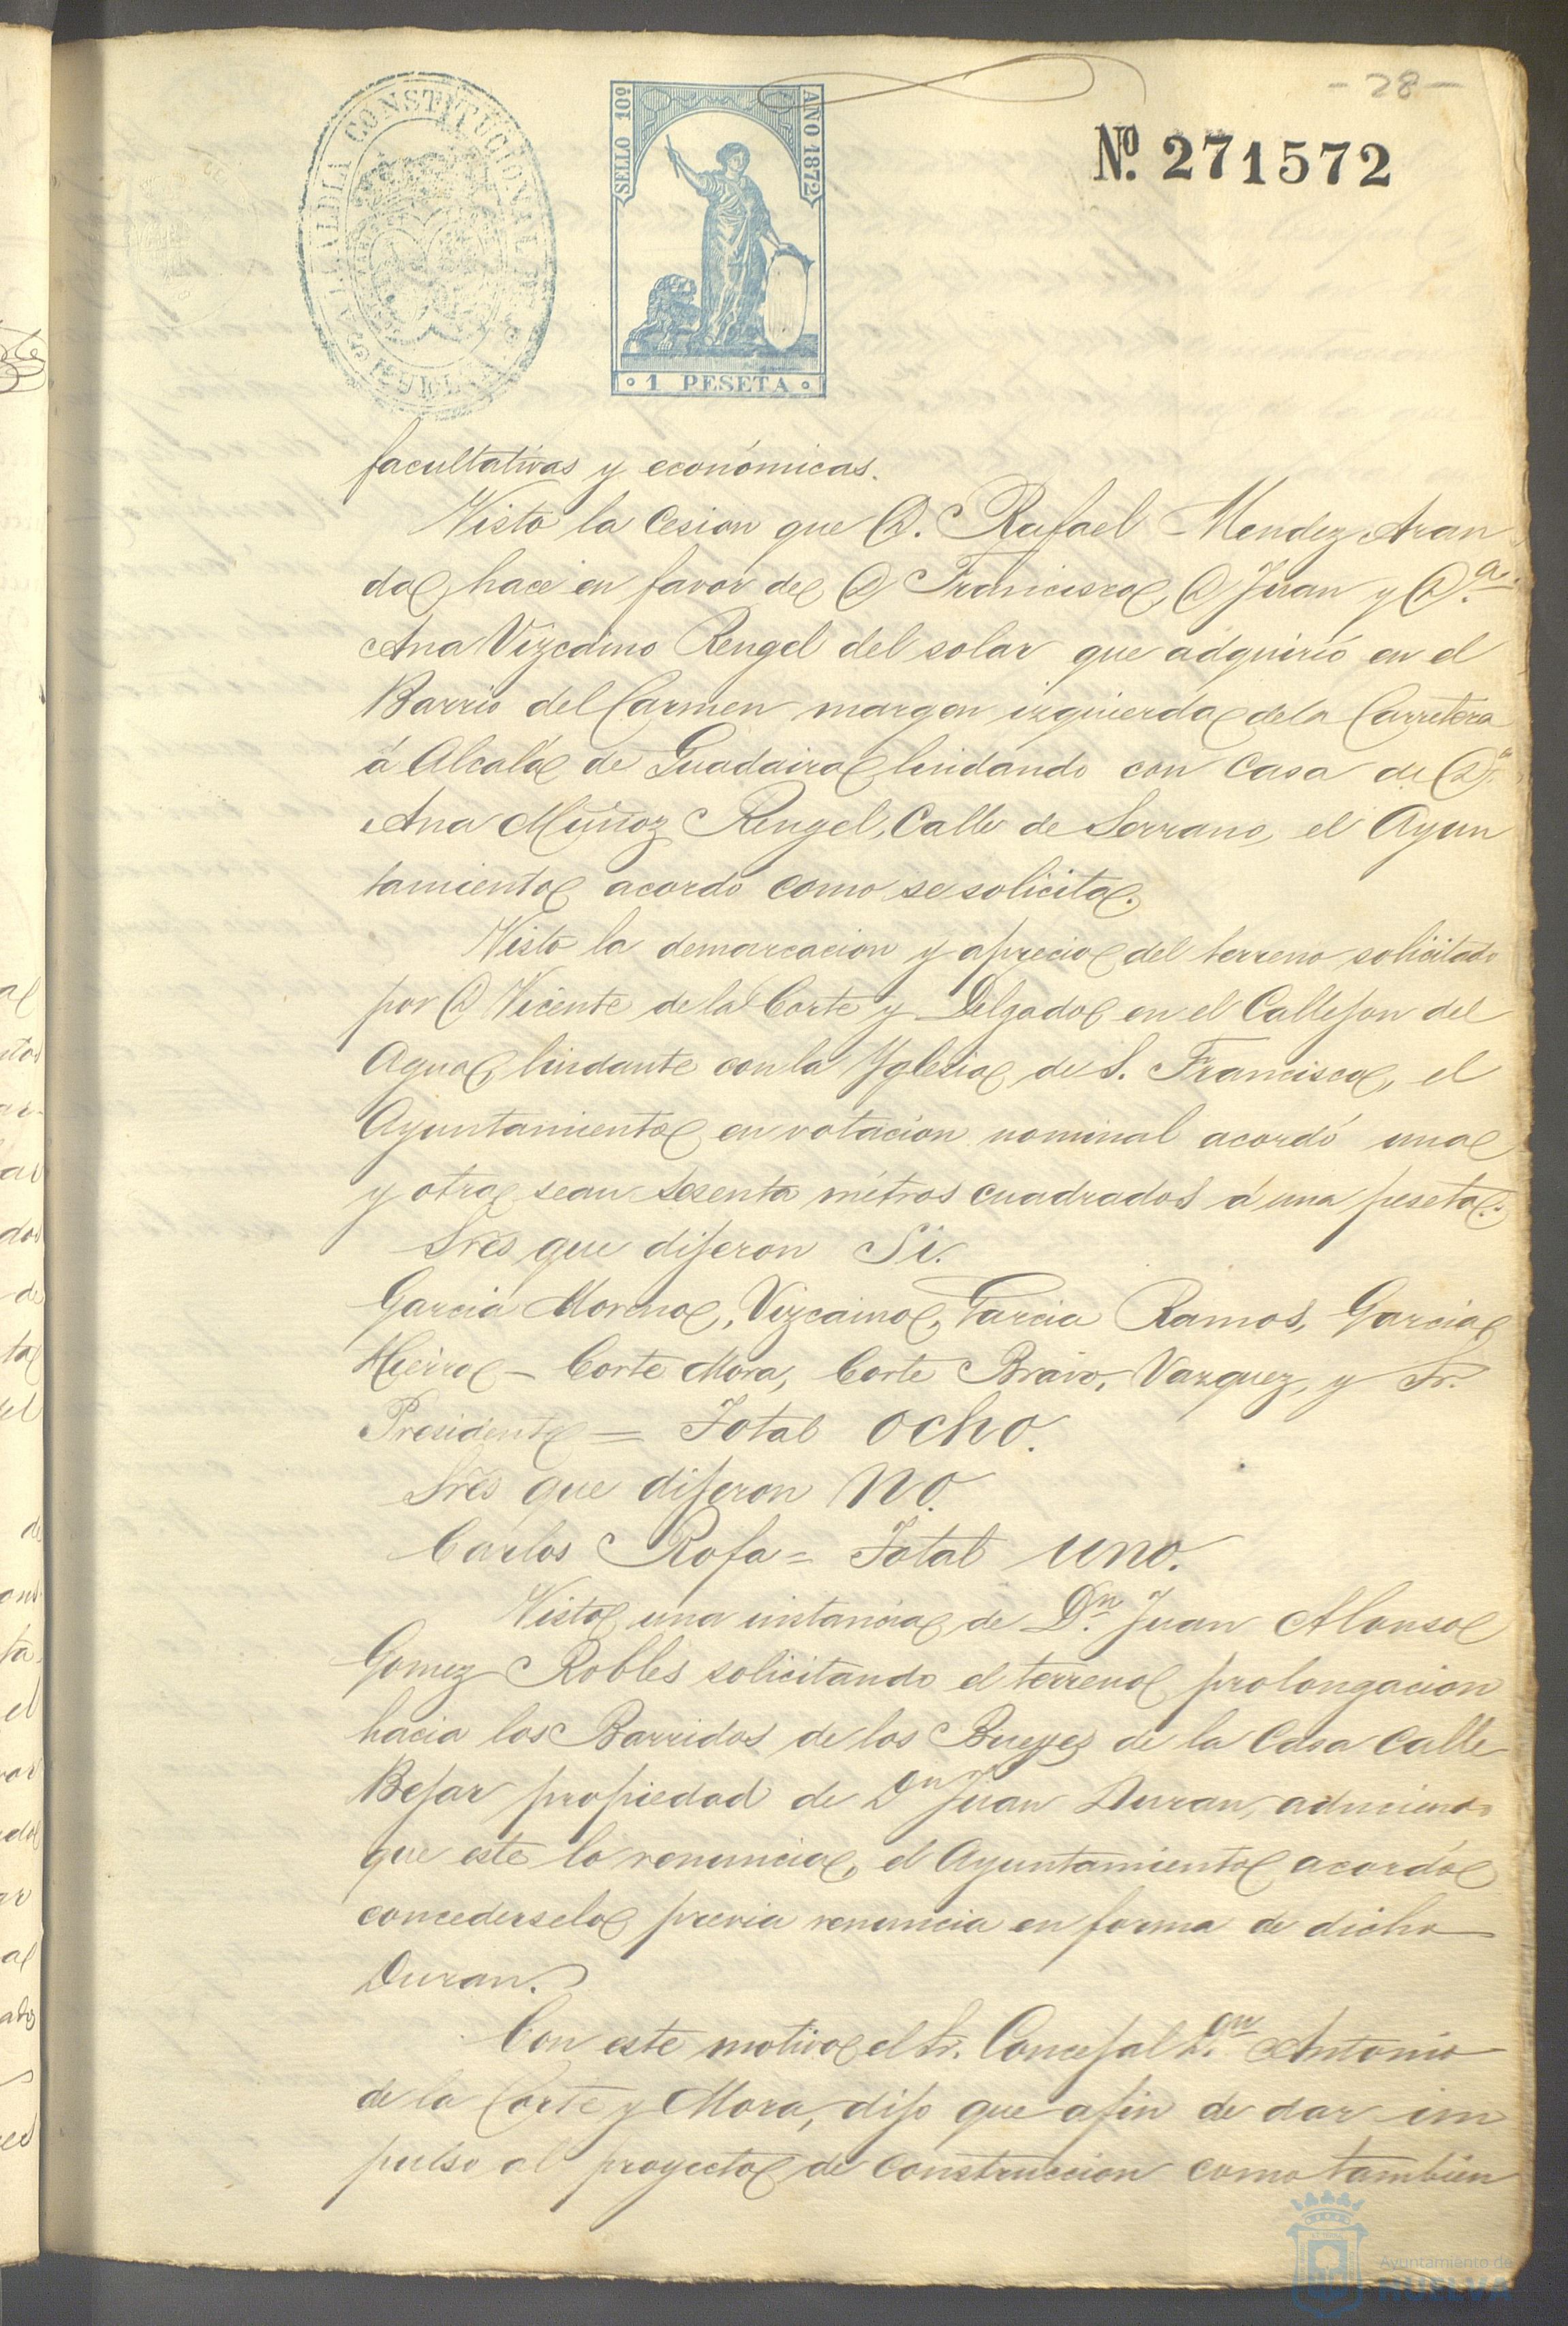 - 28 -
ALCALDIA CONSTITUCIONAL DE HUELVA
SELLO 10º
AÑO 1872
1 PESETA
Nº. 271572
facultativas y económicas.
Visto la Cesion que D. Rafael Mendez Aran
da hace en favor de D Francisco, D Juan y D.ª
Ana Vizcaino Rengel del solar que adquirió en el
Barrio del Carmen margen izquierda de la Carretera
á Alcalá de Guadaira lindando con Casa de D.ª
Ana Muñoz Rengel, Calle de Serrano, el Ayun
tamiento acordo como se solicita.
Visto la demarcacion y aprecio del terreno solicitado
por D Vicente de la Corte y Delgado en el Callejon del
Agua, lindante con la Yglesia de S. Francisco, el
Ayuntamiento en votacion nominal acordó una
y otra sean sesenta métros cuadrados á una peseta:
Sres que dijeron Si.
Garcia Moreno, Vizcaino, Garcia Ramos, Garcia
Hierro - Corte Mora, Corte Bravo, Vazquez, y Sr.
Presidente = Total ocho.
Sres que dijeron No.
Carlos Rofa = Total uno.
Visto una instancia de Dn. Juan Alonso
Gomez Robles solicitando el terreno prolongacion
hacia los Barridos de los Bueyes de la Casa Calle
Bejar propiedad de Dn Juan Duran, aduciendo
que este lo renuncia, el Ayuntamiento acordó
concederselo previa renuncia en forma de dicho
Duran.
Con este motivo el Sr. Concejal D.on Antonio
de la Corte y Mora, dijo que afin de dar im
pulso al proyecto de construccion como tambien
Ayuntamiento de
HUELVA